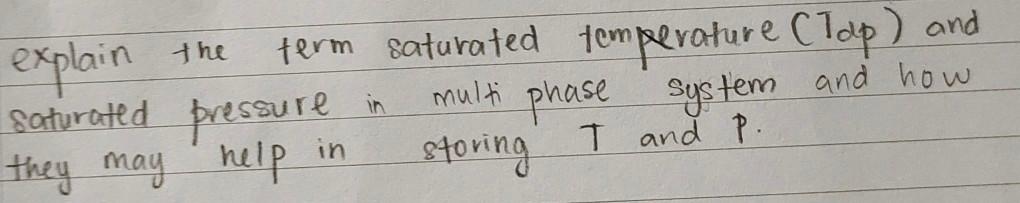 explain the term saturated temperature (Tdp) and
saturated pressure in multi phase system and how
they may help in storing T and P.